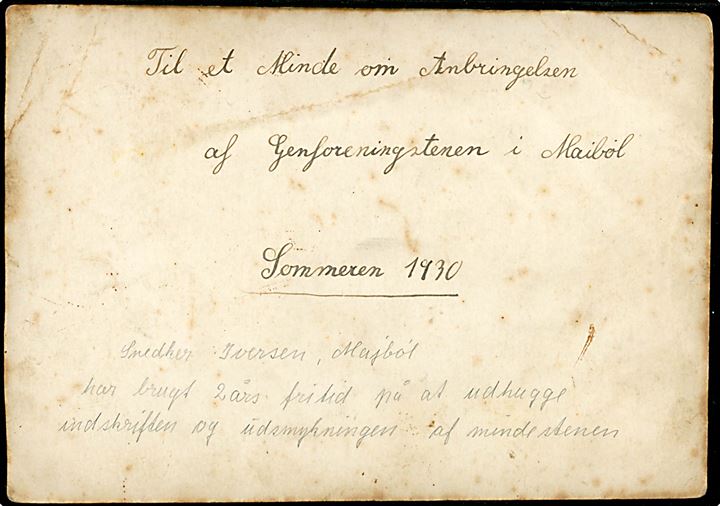 Til et Minde om Anbringelsen
af Genforeningstenen i Maibøl
Sommeren 1930
Snedker Iversen, Majbøl
har brugt 2 års fritid på at udhugge
indskriften og udsmykningen af mindestenen